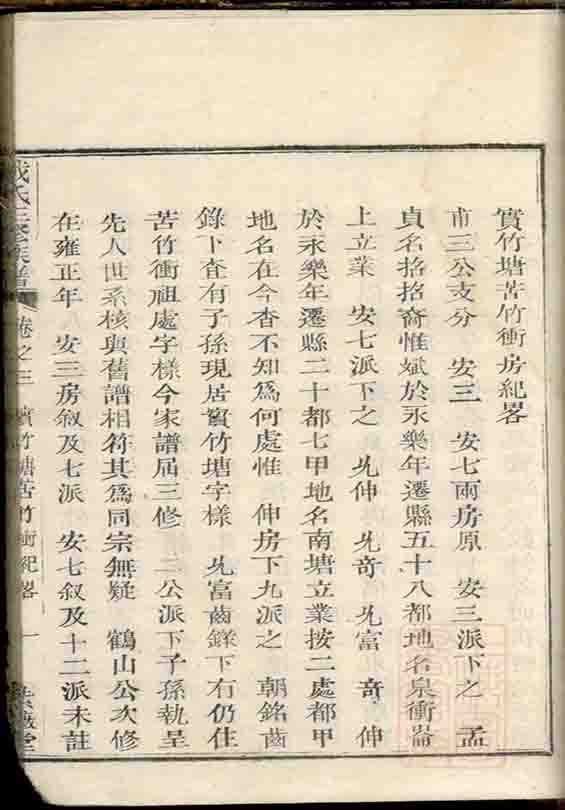 賨竹塘苦竹衝房紀畧
甫三公支分 安三 安七兩房原 安三派下之 孟
貞名掿掿裔惟斌於永樂年遷縣五十八都地名泉衝崙
上立業 安七派下之 允伸 允奇 允富 奇 伸
於永樂年遷縣二十都七甲地名南塘立業按二處都甲
地名在今杳不知為何處惟 伸房下九派之 朝銘齒
錄下查有子孫現居賨竹塘字樣 允富齒錄下有仍住
苦竹衝祖處字樣今家譜屆三修 二公派下子孫執呈
先人世系核與舊譜相符其為同宗無疑 鶴山公次修
在雍正年 安三房敘及七派 安七敘及十二派未註
氏三修族譜 卷之三 賨竹塘苦竹衝紀畧 一 堂